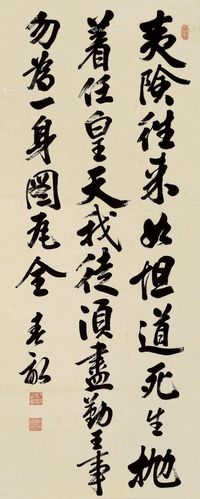 夷險往来如坦道死生抛
着任皇天我徒須盡勤王事
勿為一身圖瓦全